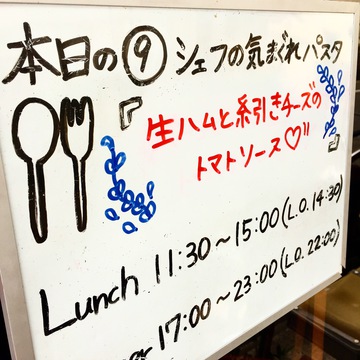 本日の⑨シェフの気まぐれパスタ
『生ハムと糸引きチーズの
トマトソース♡』
Lunch 11:30～15:00(L.O.14:30)
17:00～23:00(L.O.22:00)